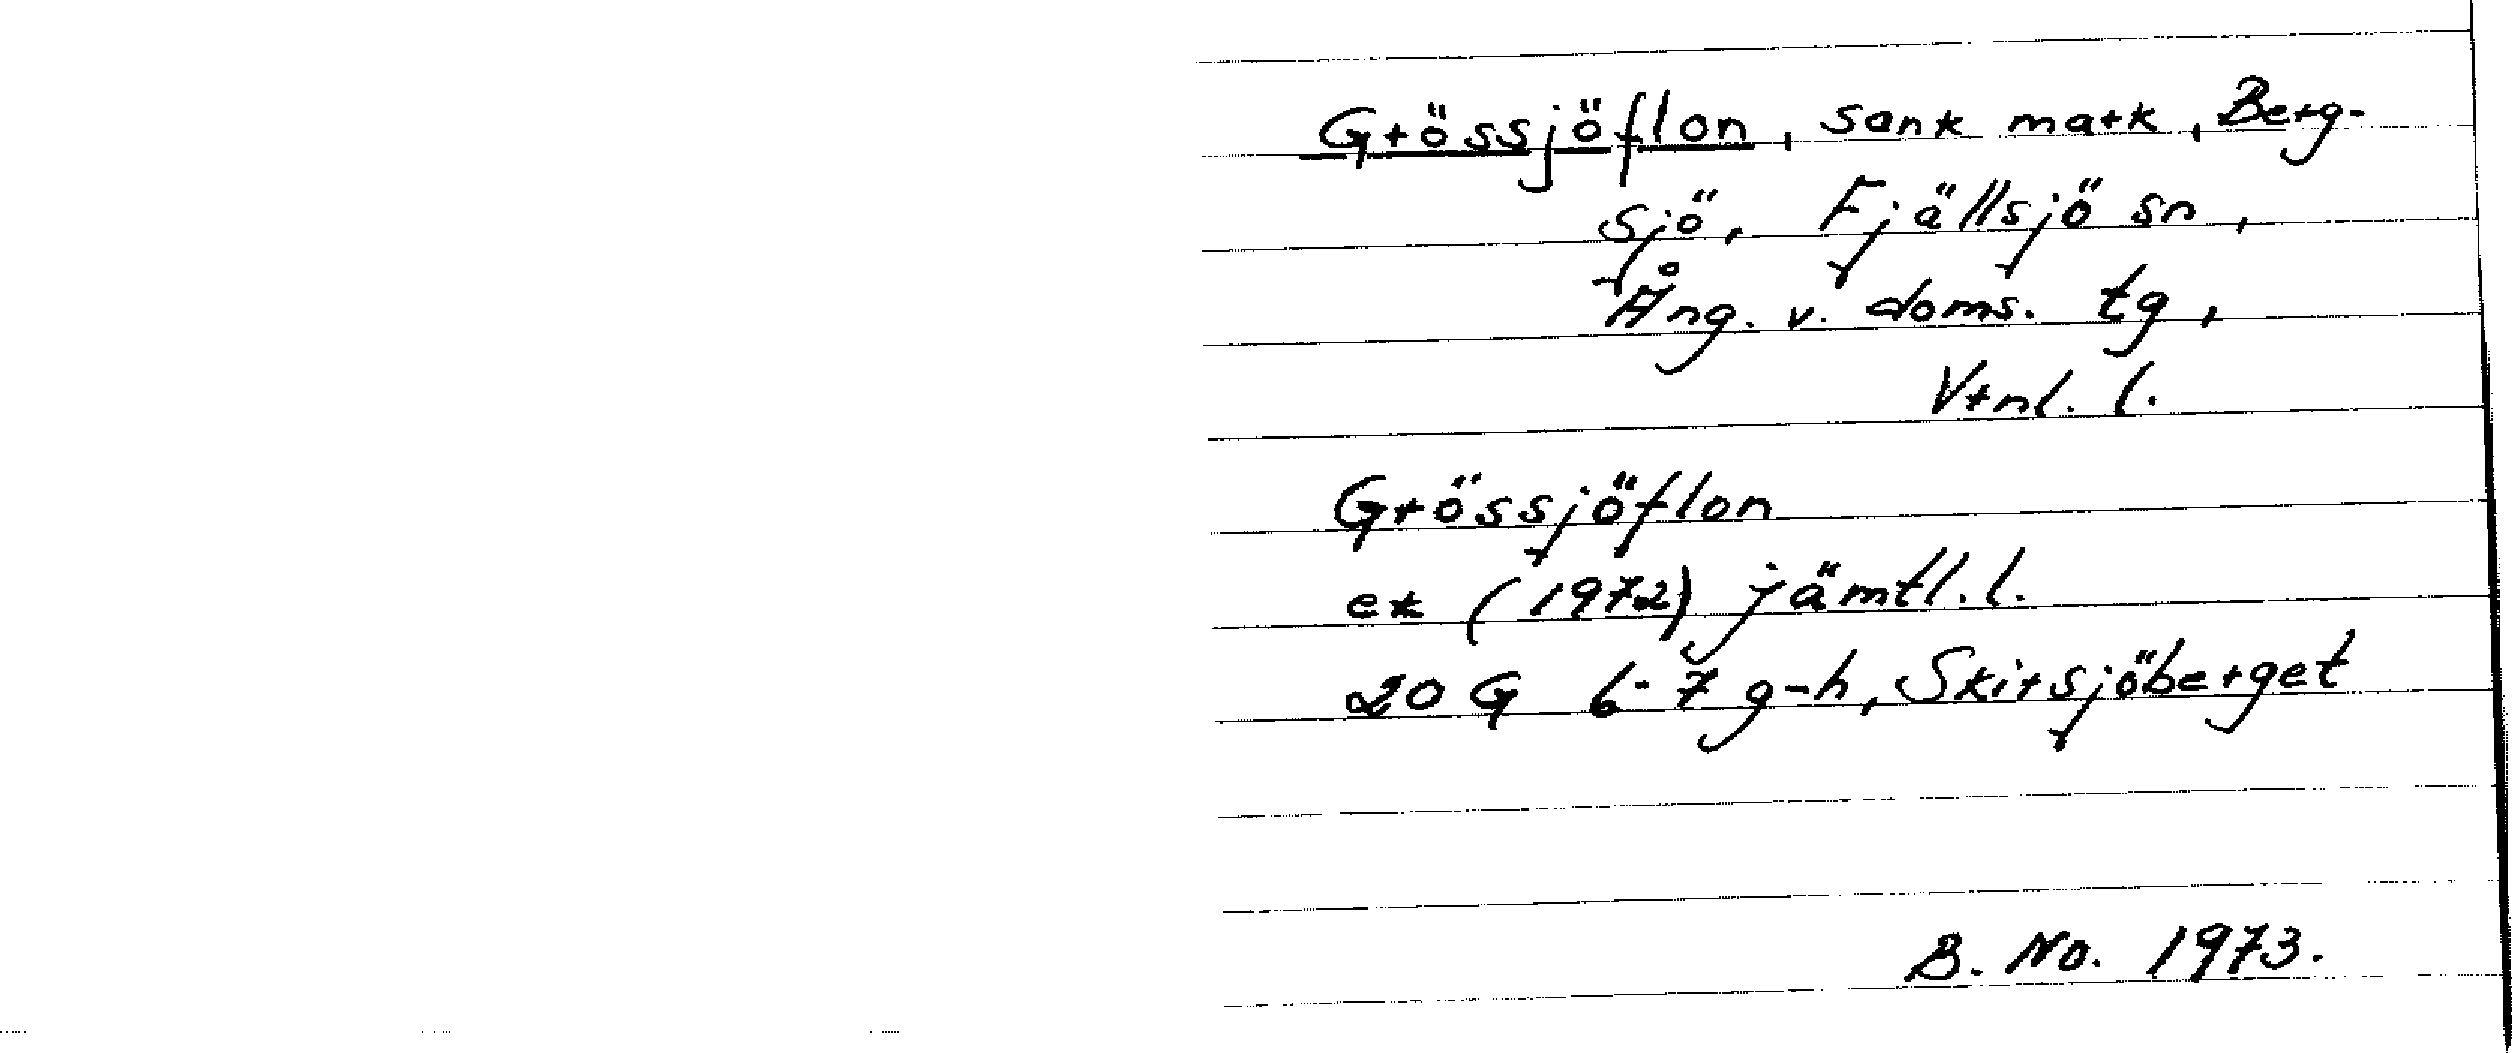 Grössjöflon, sank mark, Berg-
sjö, Fjällsjö sn,
Ång. v. doms. tg,
Vrnl. l.
Grössjöflon
ek (1972) jämtl. l.
20 G 6-7 g-h, Skirsjöberget
B. No. 1973.